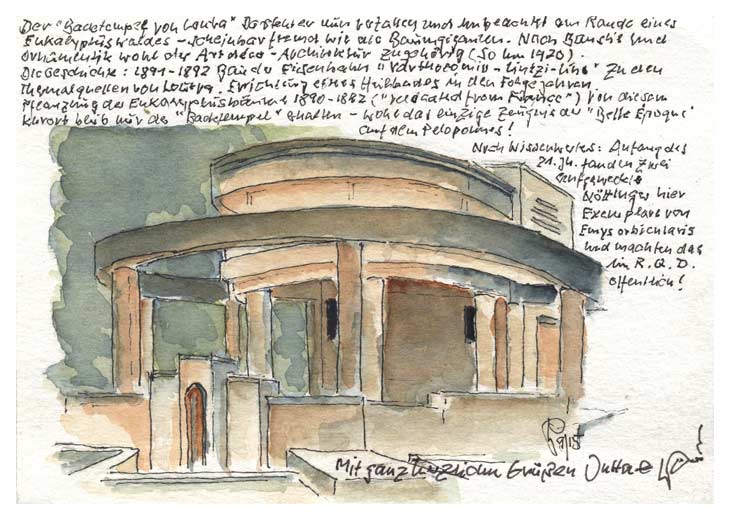 Der "Badetempel von Loutra" verfallen und unbeachtet am Rande eines
Eukalyptuswaldes - scheinbar fremd wie die Baumgiganten. Nach Baustil und
Ornamentik wohl der Art deco - Architektur zugehörig (so um 1920).
Die Geschichte: 1891-1892 Bau der Eisenbahn "Vartholomio - Lintzi-Line" zu den
Thermalquellen von Loutra. Errichtung eines Heilbades in den Folgejahren,
Pflanzung der Eukalyptusbäume ("dedicated from France") Von diesem
Kurort blieb nur der "Badetempel" erhalten - wohl das einzige Zeugnis der "Belle Epoque"
auf dem Peloponnes!
Noch Wissenswertes: Anfang des
21. Jh. fanden zwei
aufgeweckte
Nöttinger hier
Exemplare von
Emys orbicularis
und machten das
im R.Q.D.
öffentlich!
9/15
Mit ganz herzlichen Grüßen